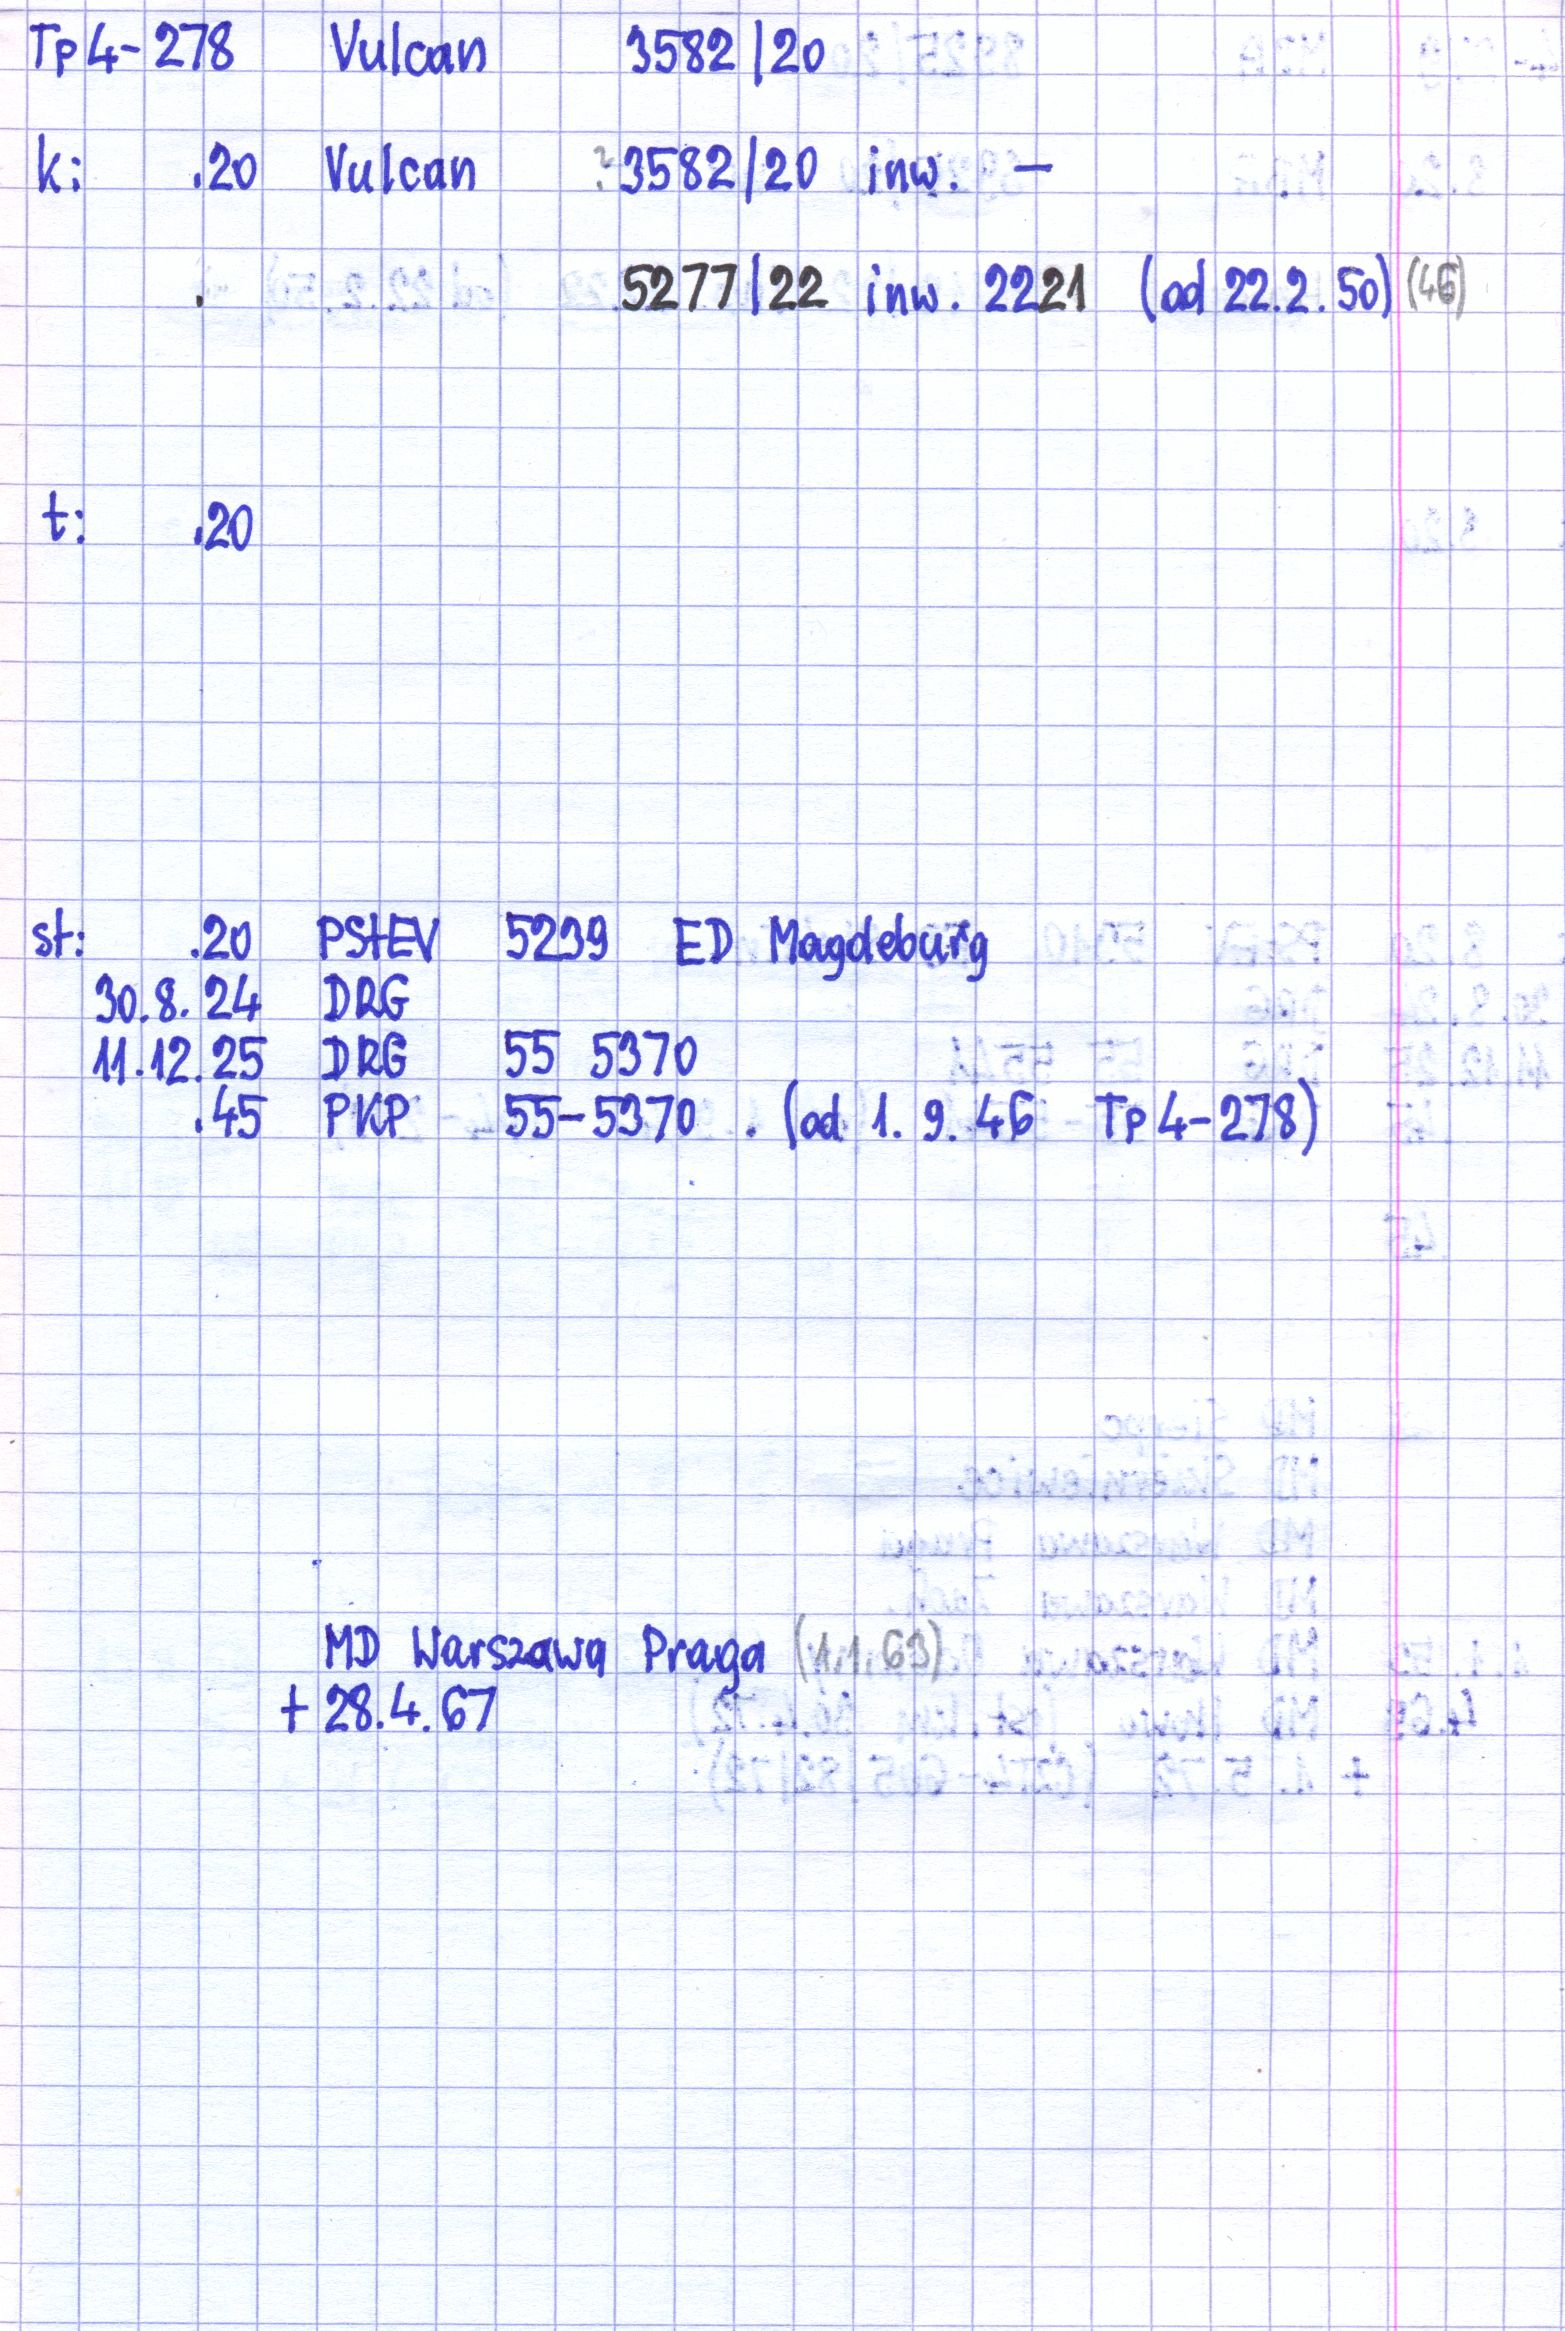 Tp4-278 Vulcan 3582/20
k: .20 Vulcan ? 3582/20 inw. —
. 5277/22 inw. 2221 (od 22.2.50) (46)
t: .20
st: .20 PStEV 5239 ED Magdeburg
30.8.24 DRG
11.12.25 DRG 55 5370
.45 PKP 55-5370 . (od 1.9.46 Tp4-278)
MD Warszawa Praga (1.1.63)
+ 28.4.67